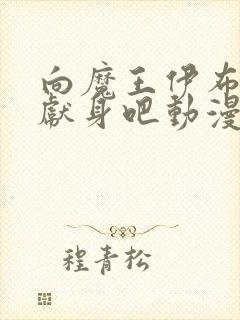 向魔王伊布
獻身吧動漫
程青松